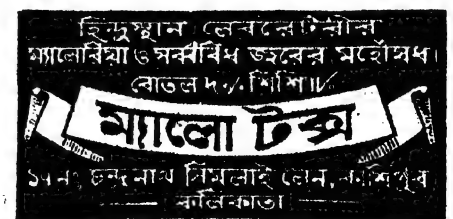 হিন্দুস্থান লেবরেটরীর
ম্যালেরিয়া ও সর্ব্ববিধ জ্বরের মহৌষধ।
বোতল ৸৵ শিশি ॥৵
ম্যালো টক্স
১৭নং চন্দ্রনাথ সিমলাই লেন, কাশিপুর
কলিকাতা